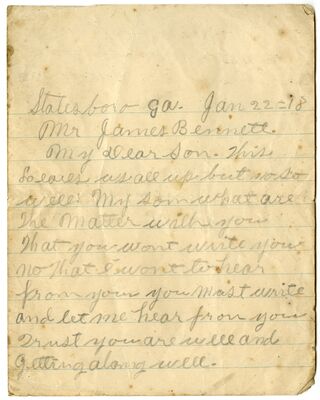 Statesboro Ga. Jan 22=18
Mr James Bennett.
My Dear Son. This
Leaves us all up but not so
well: My son what are
The Matter with you
That you wont write you
no That I wont to hear
from you you Must write
and let me hear from you
Trust you are well and
Getting along well.